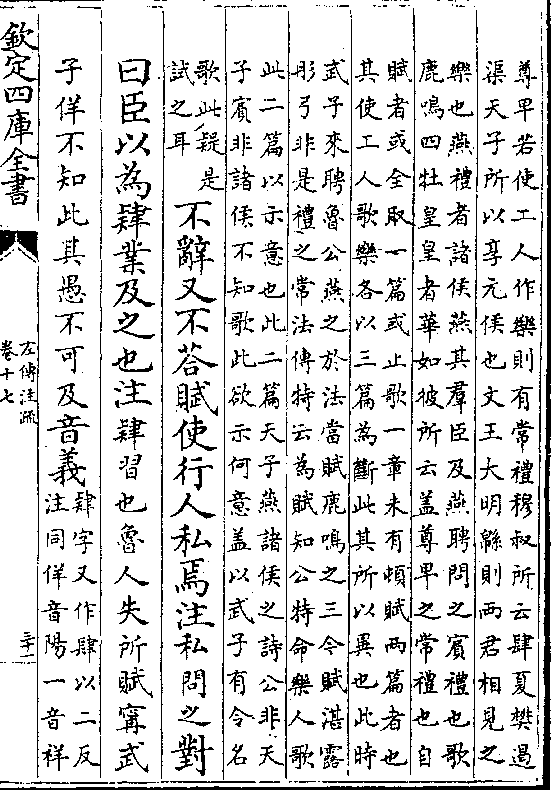 尊卑若使工人作樂則有常禮穆叔所云肆夏樊遏
渠天子所以享元侯也文王大明緜則兩君相見之
樂也燕禮者諸侯燕其羣臣及燕聘問之賓禮也歌
鹿鳴四牡皇皇者華如彼所云蓋尊卑之常禮也自
賦者或全取一篇或止歌一章未有頓賦兩篇者也
其使工人歌樂各以三篇為斷此其所以異也此時
武子來聘魯公燕之於法當賦鹿鳴之三今賦湛露
彤弓非是禮之常法傳特云為賦知公特命樂人歌
此二篇以示意也此二篇天子燕諸侯之詩公非天
子賓非諸侯不知歌此欲示何意蓋以武子有令名
歌此疑是
試之耳
不辭又不荅賦使行人私焉注私問之對
曰臣以為肄業及之也注肄習也魯人失所賦甯武
子佯不知此其愚不可及音義
肄字又作肆以二反
注同佯音陽一音祥
欽定四庫全書
左傳注疏
卷十七